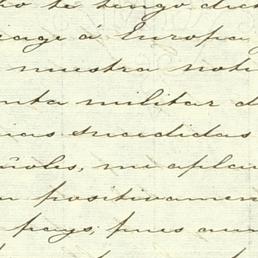 to te tengo dich
iage á Europa
nuestra noti
nta militar d
ias sucedidas
ñoles, me aplau
positivamen
pays, pues aun